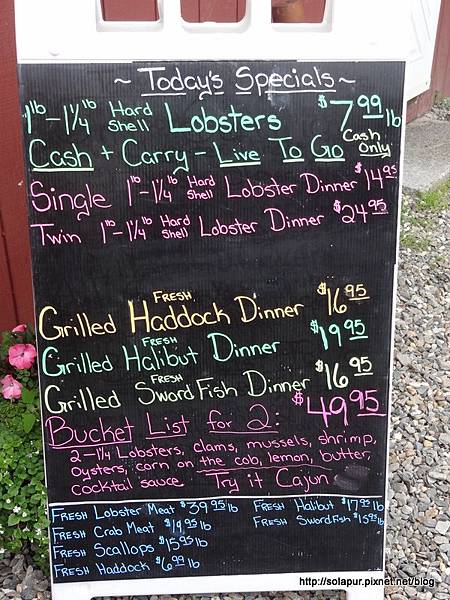 ~ Today's Specials ~
1lb - 1 1/4 lb Hard Shell Lobsters $7.99 lb
Cash + Carry - Live To Go Cash Only
Single 1lb - 1 1/4 lb Hard Shell Lobster Dinner $14.95
Twin 1lb - 1 1/4 lb Hard Shell Lobster Dinner $24.95
Grilled Fresh Haddock Dinner $16.95
Grilled Fresh Halibut Dinner $19.95
Grilled Fresh Sword Fish Dinner $16.95
Bucket List for 2: $49.95
2 - 1 1/4 Lobsters, clams, mussels, shrimp,
oysters, corn on the cob, lemon, butter,
cocktail sauce - Try it Cajun
Fresh Lobster Meat $39.95 lb
Fresh Crab Meat $19.95 lb
Fresh Scallops $15.95 lb
Fresh Haddock $6.99 lb
Fresh Halibut $17.95 lb
Fresh Swordfish $15.95 lb
http://solapur.pixnet.net/blog